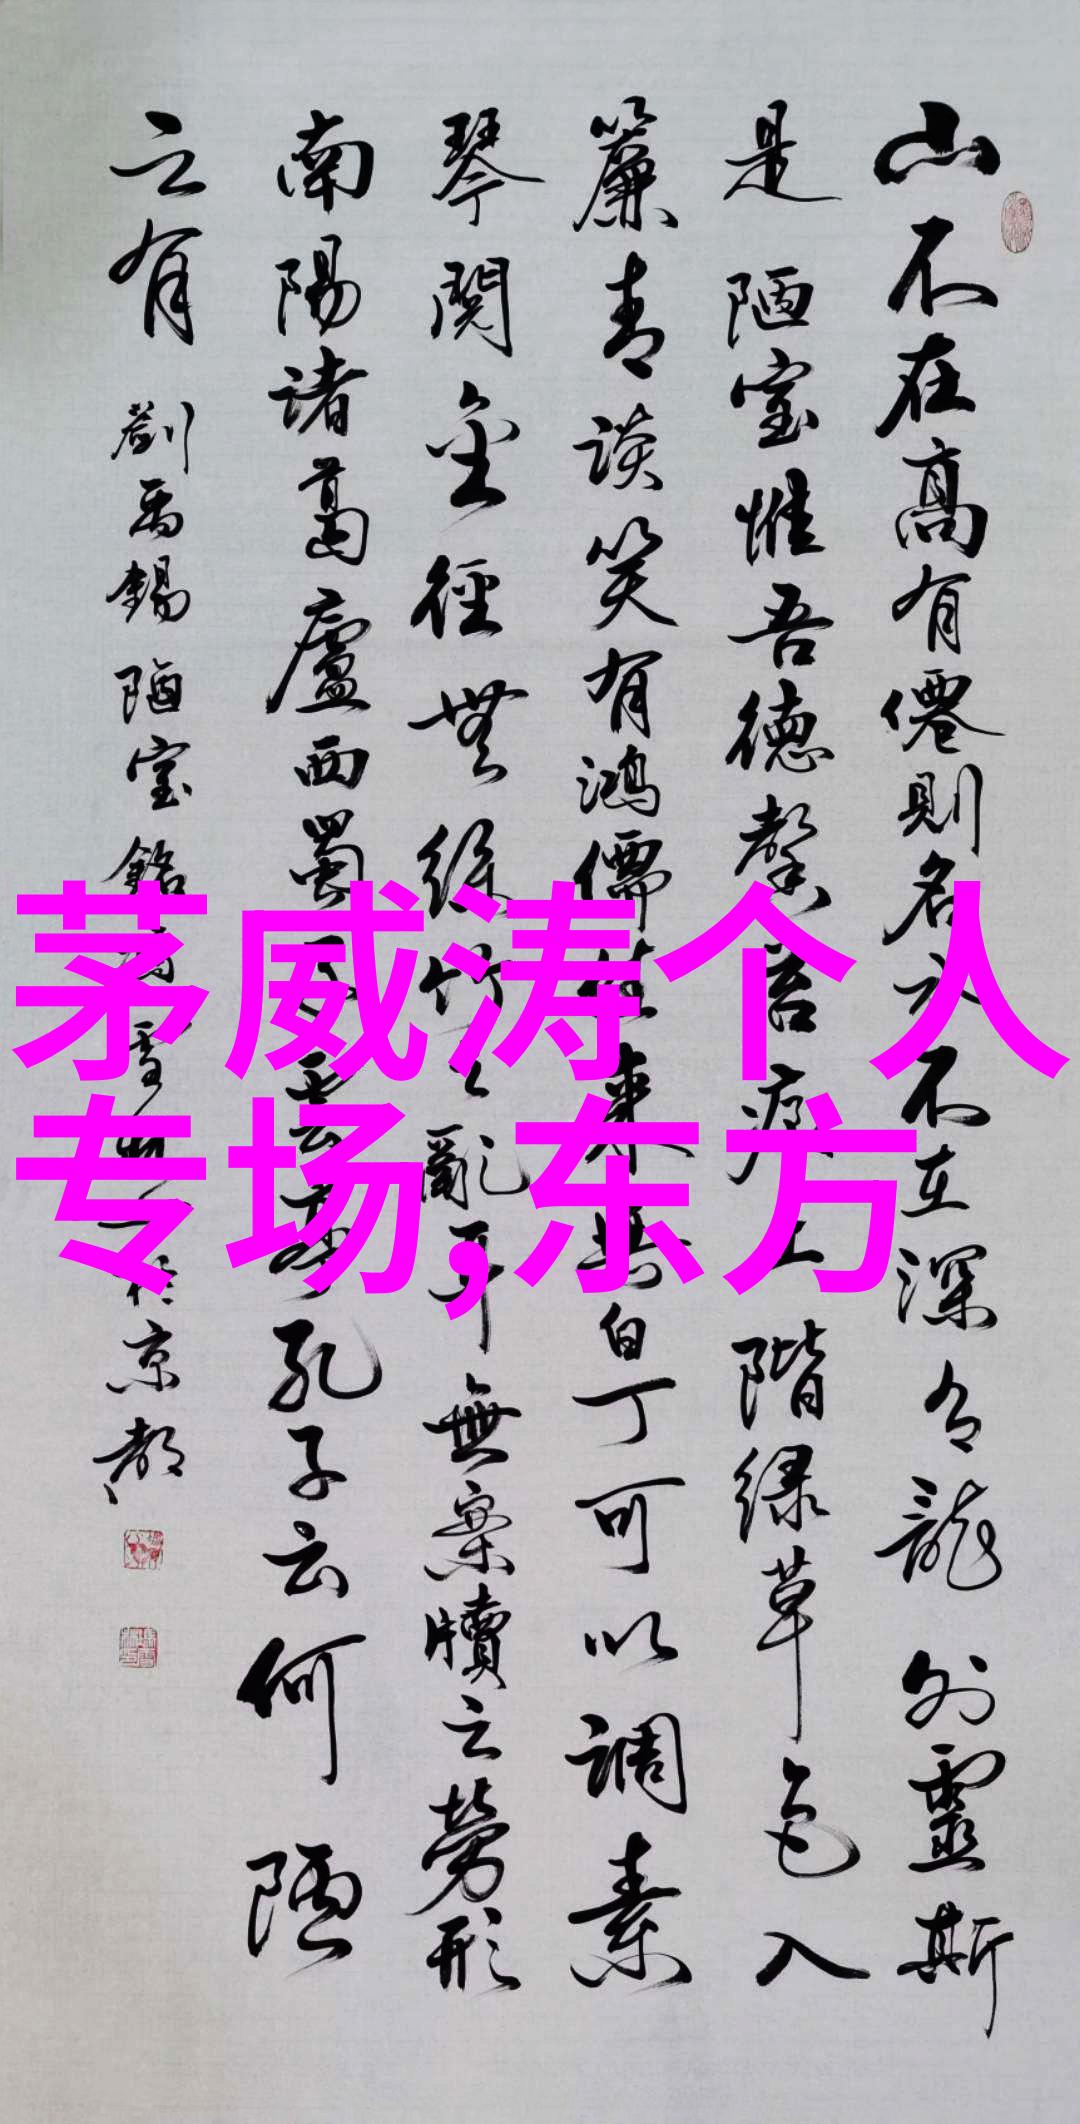 山不在高有僊則名水不在深有龍則靈斯
是陋室惟吾德馨苔痕上階绿草色入
簾青談笑有鴻儒往来無白丁可以调素
琴閱金徑無絲竹之亂耳無案牘之勞形
南陽诸葛廬西蜀子雲亭孔子云何陋
之有 劉禹錫陋室銘 雪 於京都
茅威涛个人
专场,东方